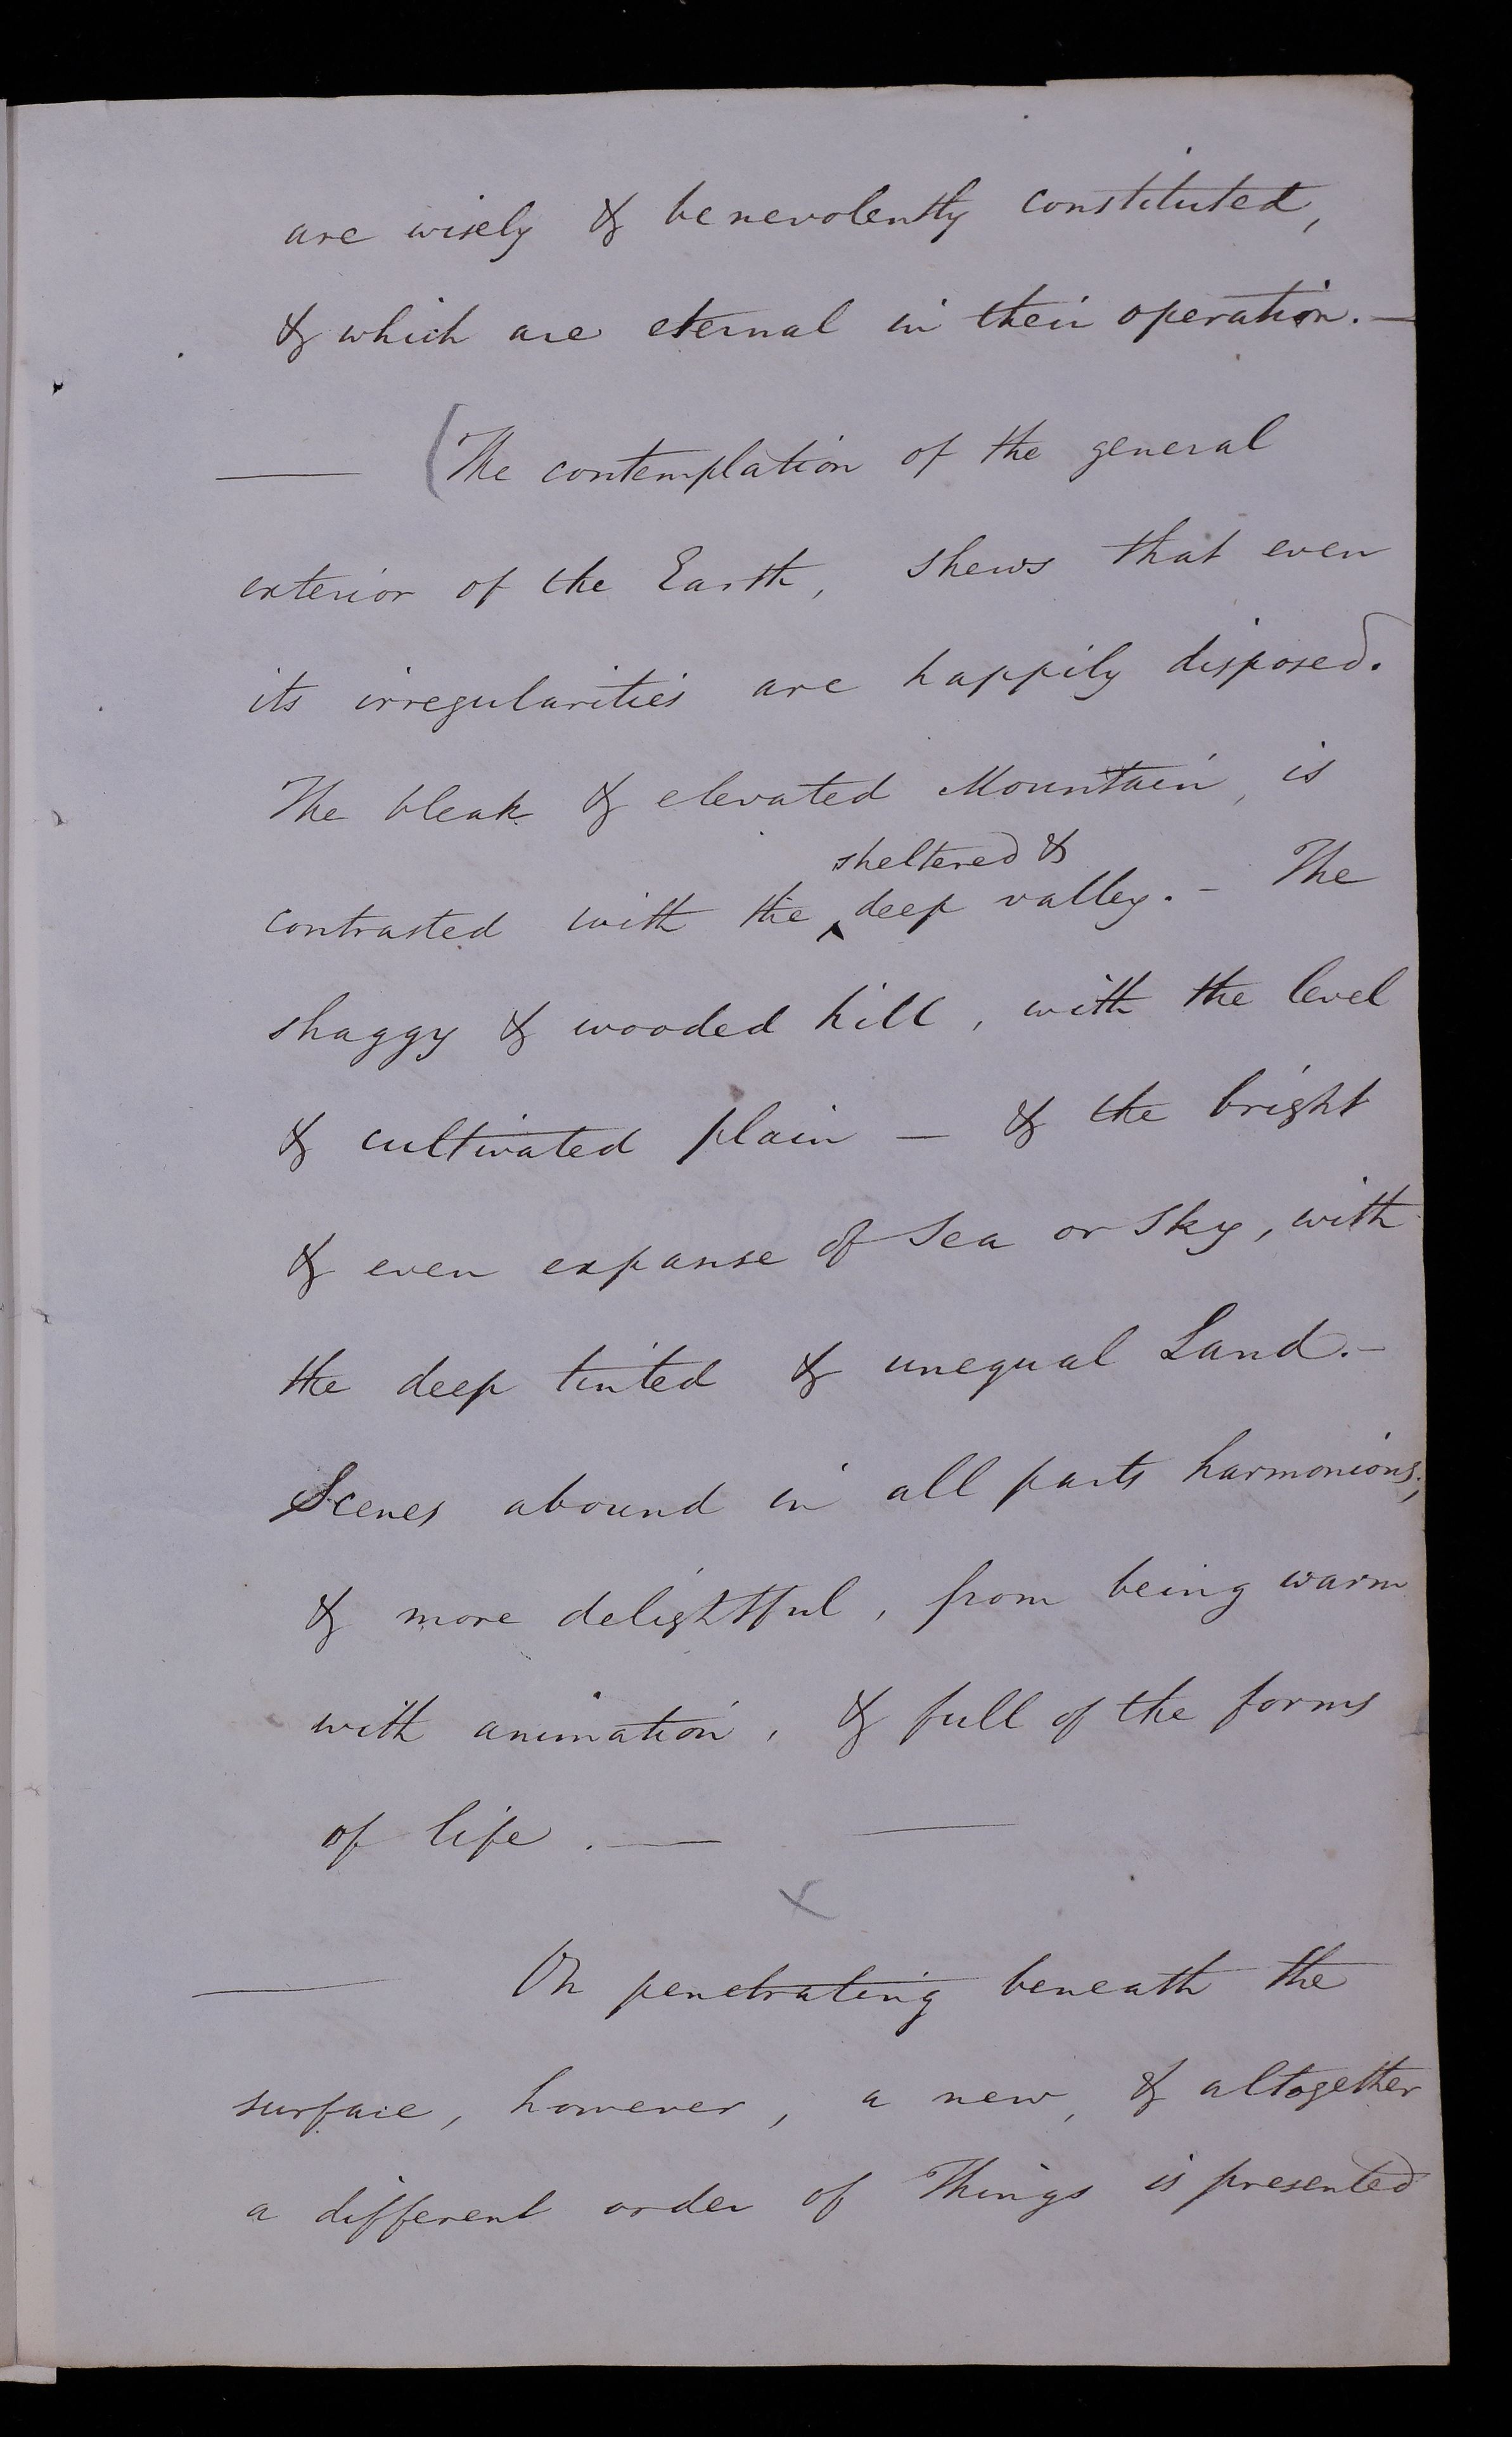 are wisely & benevolently constituted,
& which are eternal in their operation. —
— (The contemplation of the general
exterior of the Earth, shews that even
its irregularities are happily disposed.
The bleak & elevated Mountain, is
sheltered &
contrasted with the ^ deep valley. - The
shaggy & wooded hill, with the level
& cultivated plain — & the bright
& even expanse of Sea or Sky, with
the deep tinted & unequal Land. -
Scenes abound in all parts harmonious;
& more delightful, from being warm
with animation, & full of the forms
of life. — —
x
— On penetrating beneath the
surface, however, a new, & altogether
a different order of Things is presented